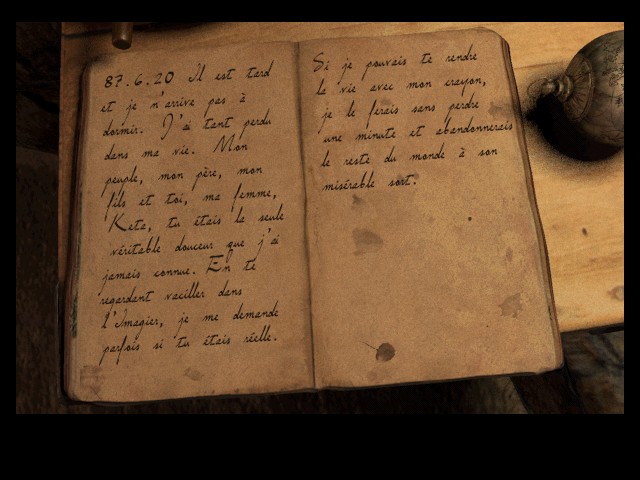 87.6.20 Il est tard
et je n'arrive pas à
dormir. J'ai tant perdu
dans ma vie. Mon
peuple, mon père, mon
fils et toi, ma femme,
Keta, tu étais la seule
véritable douceur que j'ai
jamais connue. En te
regardant vaciller dans
l'Imagier, je me demande
parfois si tu étais réelle.
Si je pouvais te rendre
la vie avec mon crayon,
je le ferais sans perdre
une minute et abandonnerais
le reste du monde à son
misérable sort.